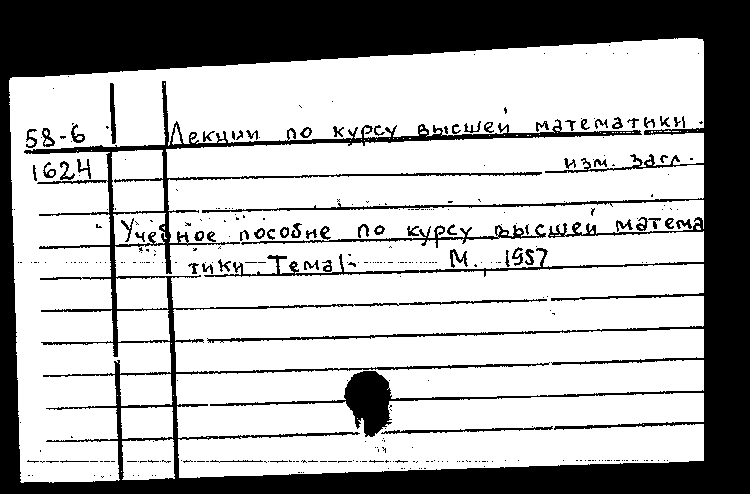 58-6 Лекции по курсу высшей математики.
1624 изм. загл.
Учебное пособие по курсу высшей матема
тики. Тема 1- М., 1957